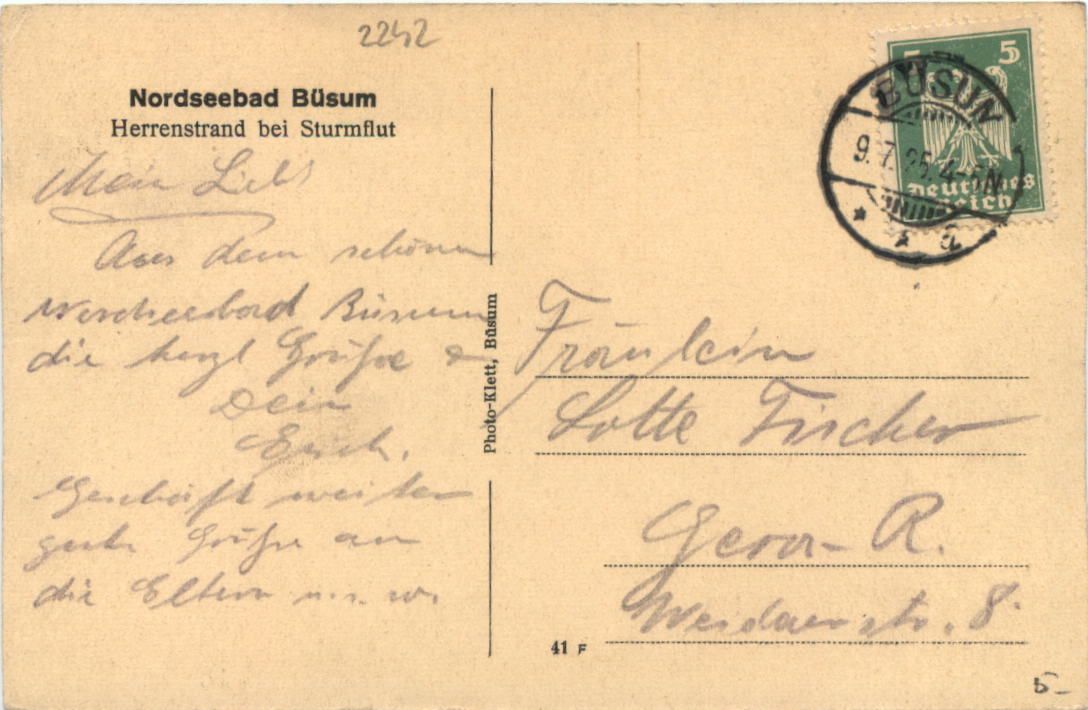 2242
Nordseebad Büsum
Herrenstrand bei Sturmflut
Mein Lieb
Aus dem schönen
Nordseebad Büsum
die herzl Grüße
Dein
Erich.
Geschäft weiter
gut. Grüße an
die Eltern u.s.w.
Photo-Klett, Büsum
5 5
BÜSUM
9.7.25.4-5N
Deutsches
Reich
* * a
Fräulein
Lotte Fischer
Gera-R.
Weidaerstr. 8.
41 F
5-